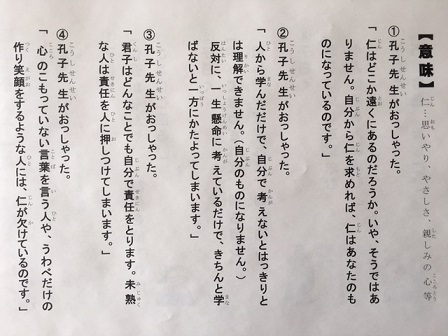 【意味】仁…思いやり、やさしさ、親しみの心 等
① 孔子先生がおっしゃった。
「仁はどこか遠くにあるのだろうか。いや、そうではあ
りません。自分から仁を求めれば、仁はあなたのも
のになっているのです。」
② 孔子先生がおっしゃった。
「人から学んだだけで、自分で考えないとはっきりと
は理解できません。(自分のものになりません。)
反対に、一生懸命に考えているだけで、きちんと学
ばないと一方にかたよってしまいます。」
③ 孔子先生がおっしゃった。
「君子はどんなことでも自分で責任をとります。未熟
な人は責任を人に押しつけてしまいます。」
④ 孔子先生がおっしゃった。
「心のこもっていない言葉を言う人や、うわべだけの
作り笑顔をするような人には、仁が欠けているのです。」